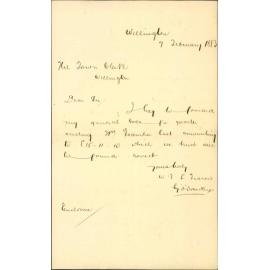 Wellington
7 February 1883
The Town Clerk
Wellington
Dear Sir,
I beg to forward
my general
ending 31st December last amounting
to £15-11-10 which we trust will
be found correct
Yours truly
Enclosure